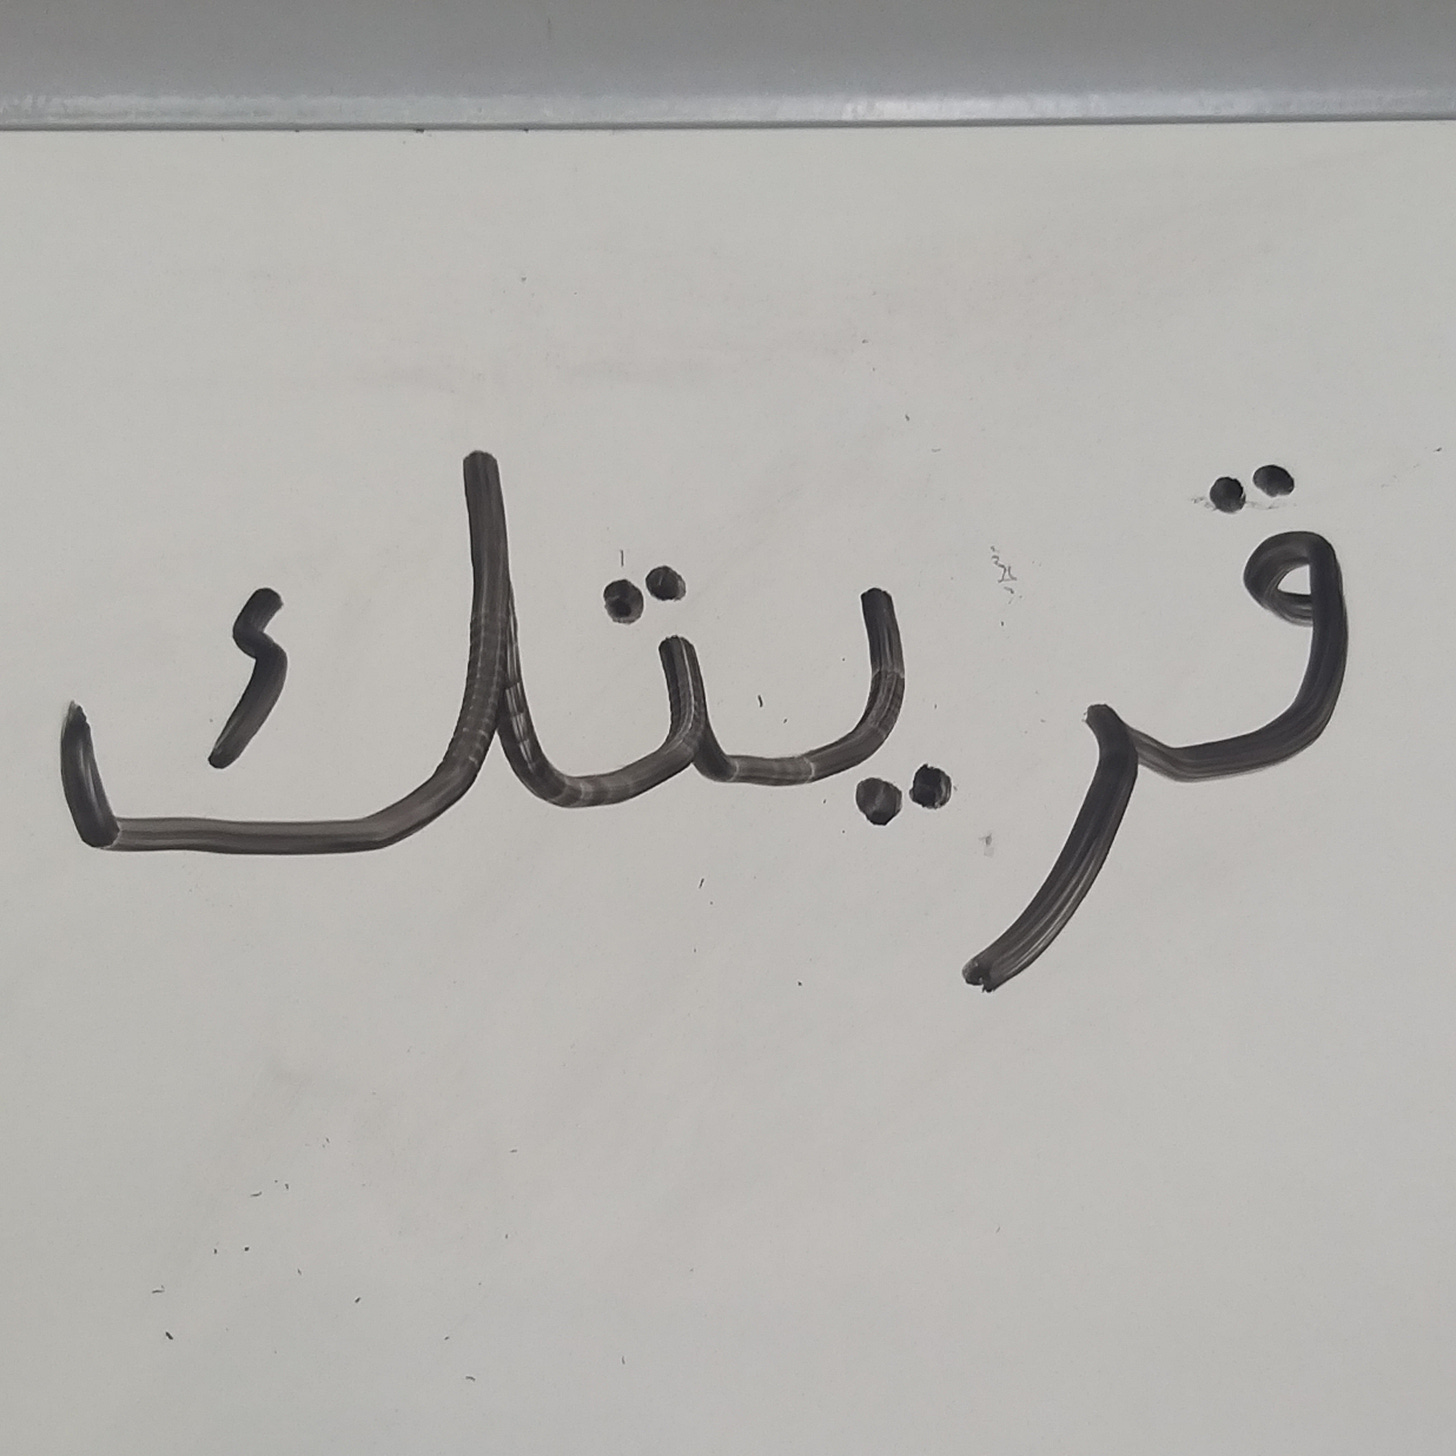 قريتك